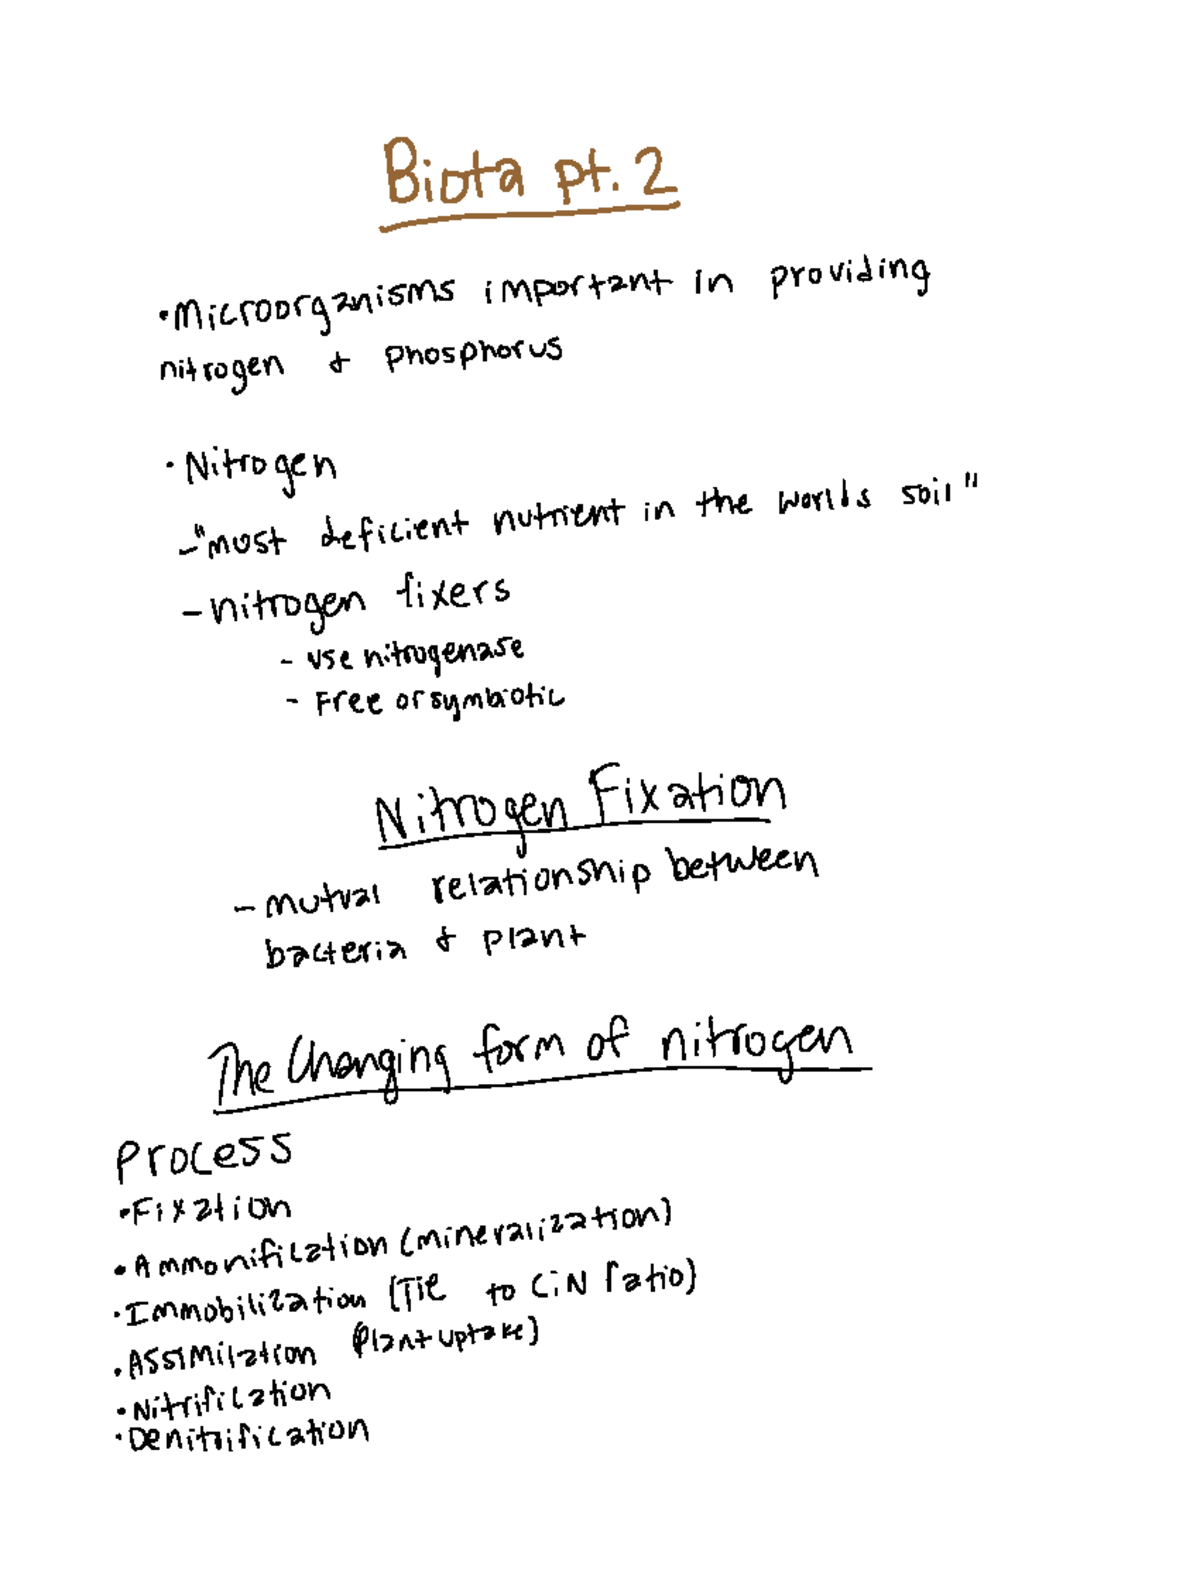 Biota pt. 2
•Microorganisms important in providing
nitrogen & phosphorus
• Nitrogen
-"most deficient nutrient in the worlds soil"
- nitrogen fixers
- use nitrogenase
- Free or symbiotic
Nitrogen Fixation
- mutual relationship between
bacteria & plant
The Changing form of nitrogen
Process
•Fixation
•Ammonification (mineralization)
•Immobilization (Tie to C:N ratio)
•Assimilation (Plant uptake)
•Nitrification
•Denitrification